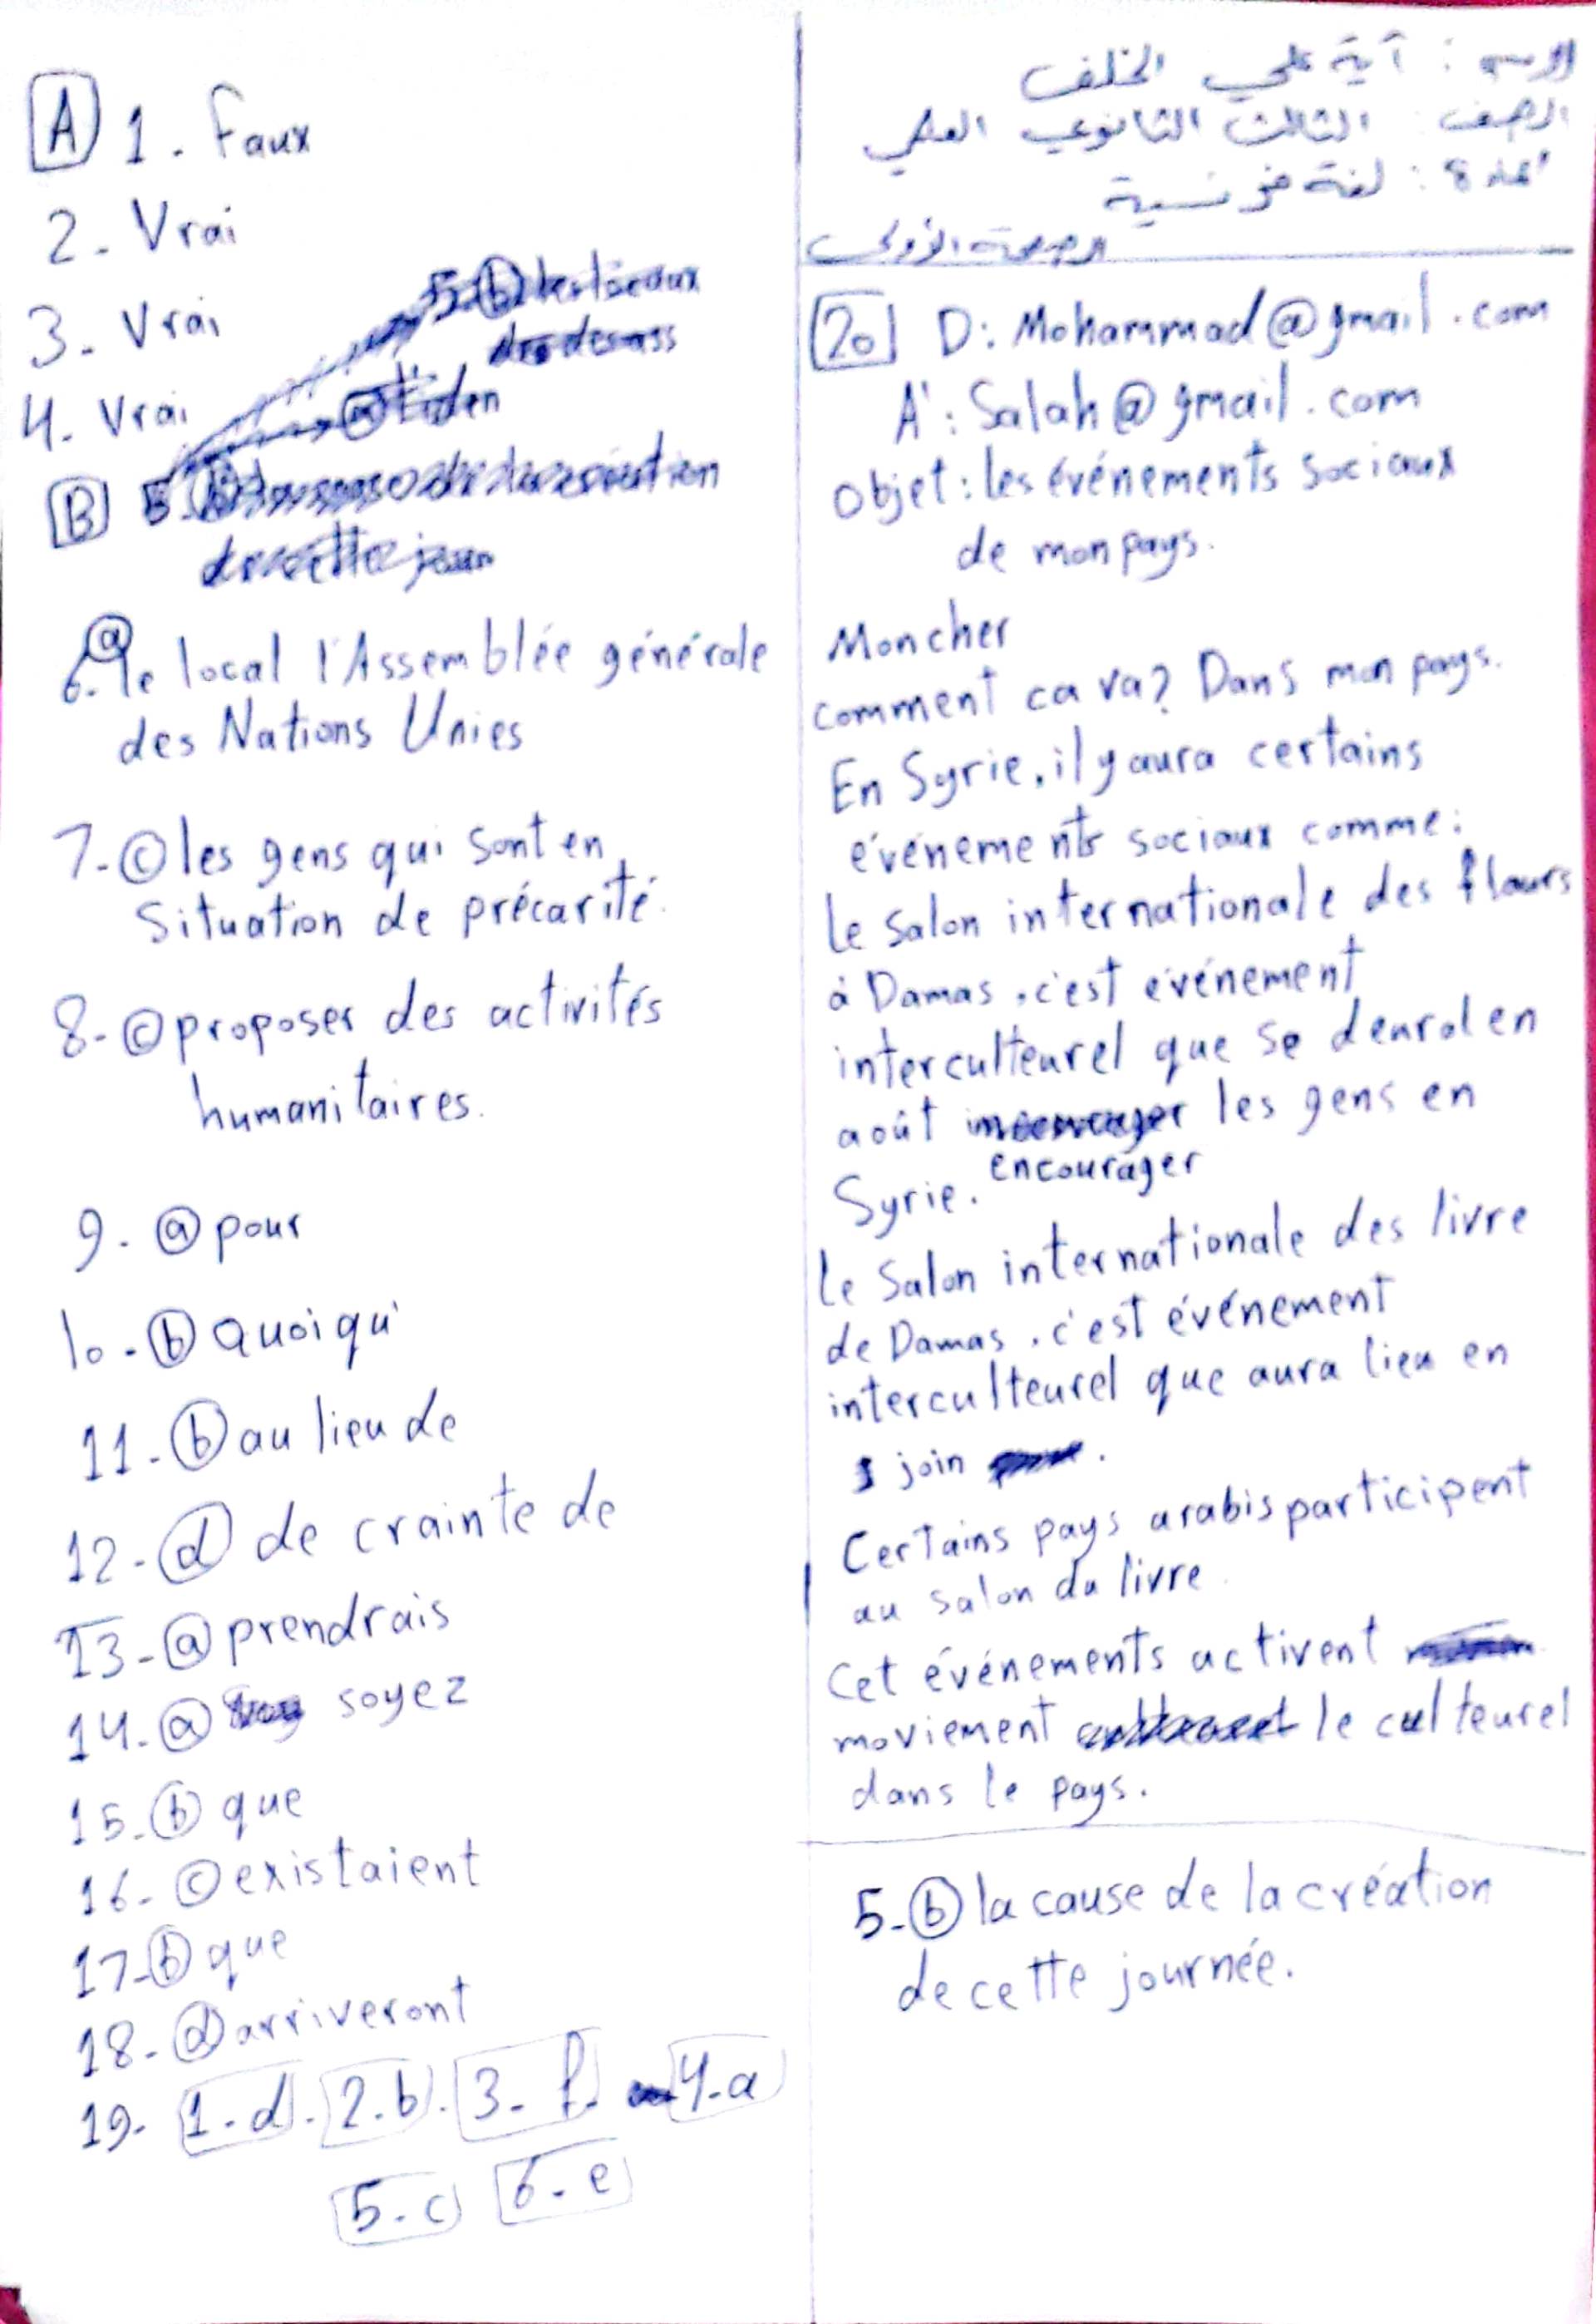 الاسم : آية علي الخلف
الصف : الثالث الثانوي العلمي
المادة : لغة فرنسية
الصفحة الأولى
A 1. Faux
2. Vrai
3. Vrai
4. Vrai
B
6. a le local l'Assemblée générale
des Nations Unies
7- c les gens qui sont en
situation de précarité.
8- c proposer des activités
humanitaires.
9. a pour
10. b quoi qu'
11- b au lieu de
12- d de crainte de
13- a prendrais
14- a soyez
15- b que
16- c existaient
17- b que
18- d arriveront
19- 1-d. 2.b. 3- f. 4-a
5-c 6-e
20 D: Mohammad@gmail.com
A': Salah@gmail.com
Objet: les événements sociaux
de mon pays.
Mon cher
comment ca va? Dans mon pays.
En Syrie, il y aura certains
événements sociaux comme:
le salon internationale des flaurs
à Damas, c'est événement
interculteurel que se dearolen
août encourager les gens en
Syrie.
le Salon internationale des livre
de Damas, c'est événement
interculteurel que aura lieu en
join.
Certains pays arabis participent
au salon du livre.
Cet événements activent
moviement le culteurel
dans le pays.
5- b la cause de la création
de cette journée.